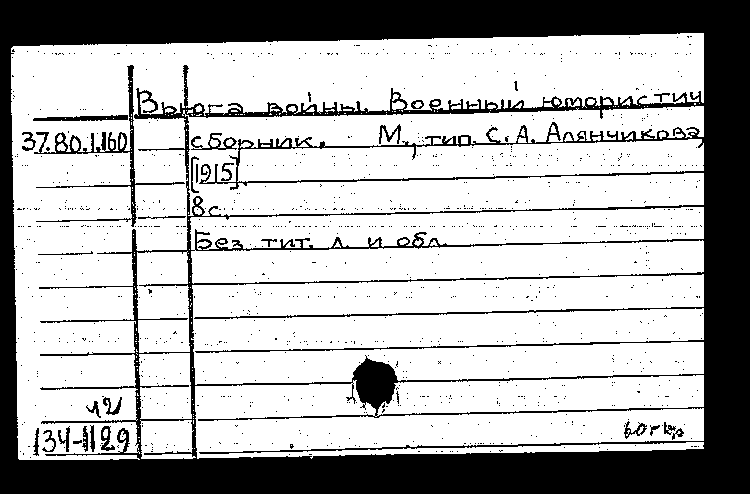 Вьюга войны. Военный юмористич
37.80.1.160 сборник. М., тип. С. А. Алянчикова,
[1915].
8 с.
Без тит. л. и обл.
134-1129